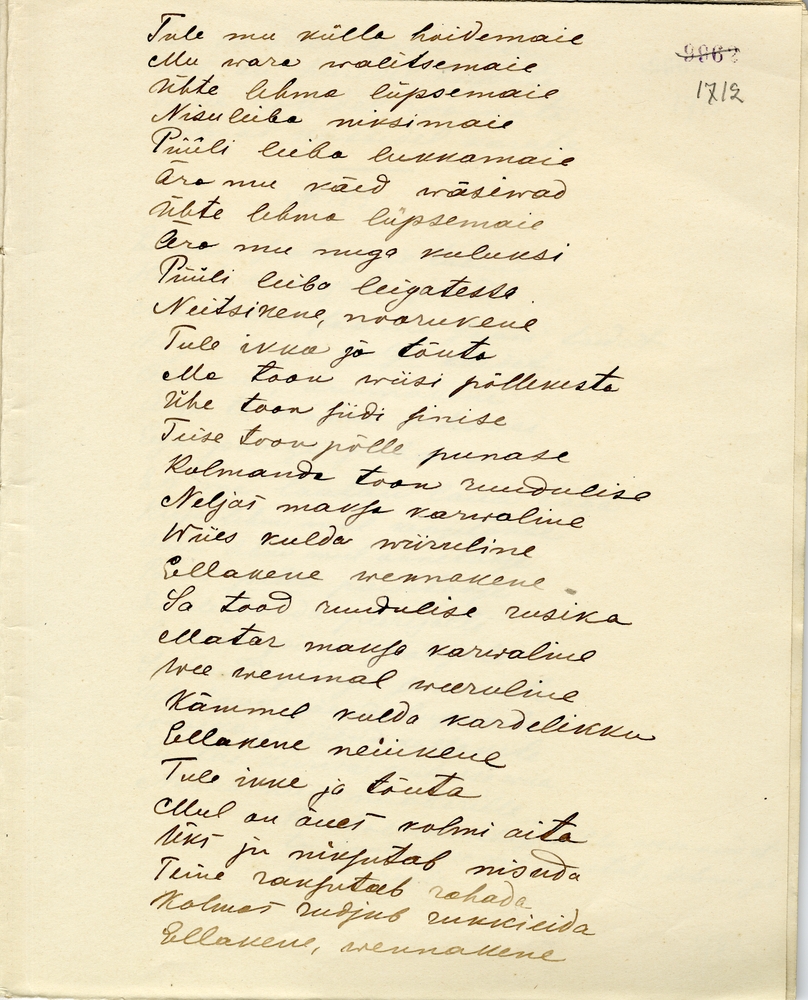 Tule mu külla hoidemaie
Mu wara walitsemaie
Ühte lehma lüpsemaie
Nisuleiba niksimaie
Püüli leiba lukkamaie
Ära mu käed wäsiwad
Ühte lehma lüpsemaie
Ära mu nuga kuluksi
Püüli leiba leigatessa
Neitsikene, noorukene
Tule ikka ja tõuta
Ma toon wiisi põllekesta
Ühe toon siidi sinise
Teise toon põlle punase
Kolmanda toon ruudulise
Neljas maksa karwaline
Wiies kulda wiiruline
Ellakene wennakene
Sa tood ruudulise rusika
Matar maksa karwaline
wee wemmal weeruline
Kämmel kulda kardelikku
Ellakene neiukene
Tule ikke ja tõuta
Mul on õues kolmi aita
Üks ju niksutab nisuda
Teine raksutab rahada
Kolmas rudjub rukkieida
Ellakene, wennakene
1712